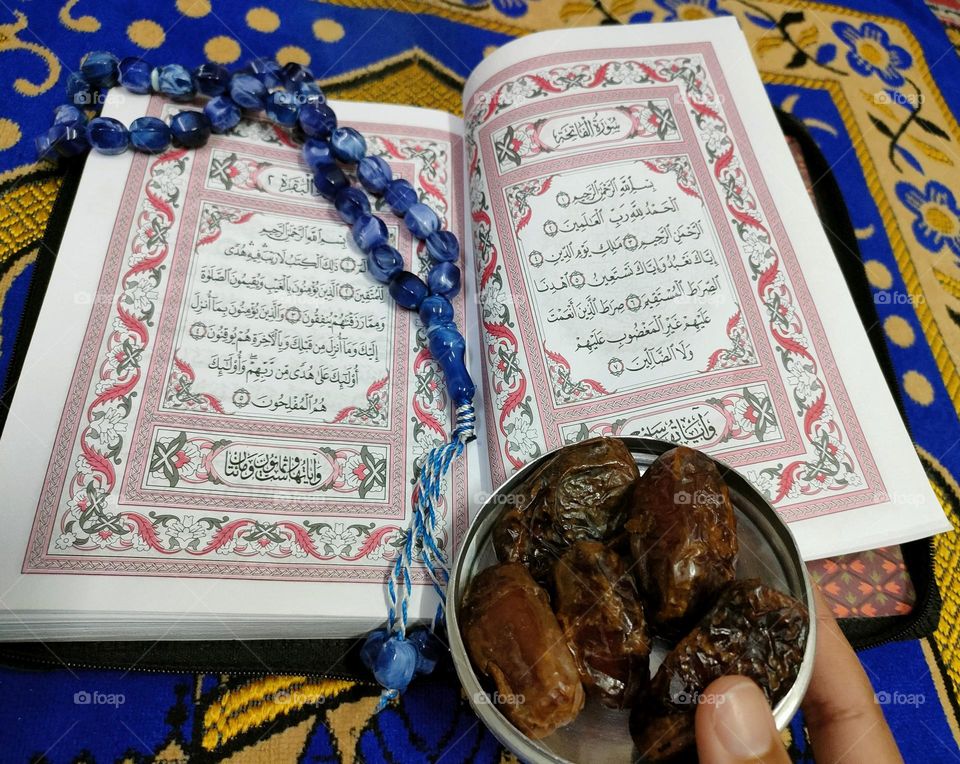 سُورَةُ الْفَاتِحَةِ
بِسْمِ اللَّهِ الرَّحْمَٰنِ الرَّحِيمِ ١
الْحَمْدُ لِلَّهِ رَبِّ الْعَالَمِينَ ٢
الرَّحْمَٰنِ الرَّحِيمِ ٣ مَٰلِكِ يَوْمِ الدِّينِ ٤
إِيَّاكَ نَعْبُدُ وَإِيَّاكَ نَسْتَعِينُ ٥ اهْدِنَا
الصِّرَاطَ الْمُسْتَقِيمَ ٦ صِرَاطَ الَّذِينَ أَنْعَمْتَ
عَلَيْهِمْ غَيْرِ الْمَغْضُوبِ عَلَيْهِمْ
وَلَا الضَّالِّينَ ٧
وَآيَاتُهَا
الْبَقَرَةِ ٢
بِسْمِ اللَّهِ الرَّحْمَٰنِ الرَّحِيمِ
ذَٰلِكَ الْكِتَٰبُ لَا رَيْبَ فِيهِ هُدًى
لِّلْمُتَّقِينَ ٢ الَّذِينَ يُؤْمِنُونَ بِالْغَيْبِ وَيُقِيمُونَ الصَّلَوٰةَ
وَمِمَّا رَزَقْنَٰهُمْ يُنفِقُونَ ٣ وَالَّذِينَ يُؤْمِنُونَ بِمَا أُنزِلَ
إِلَيْكَ وَمَا أُنزِلَ مِن قَبْلِكَ وَبِالْآخِرَةِ هُمْ يُوقِنُونَ ٤
أُولَٰئِكَ عَلَىٰ هُدًى مِّن رَّبِّهِمْ وَأُولَٰئِكَ
هُمُ الْمُفْلِحُونَ ٥
وَآيَاتُهَا سِتٌّ وَثَمَانُونَ وَمِائَتَانِ
foap